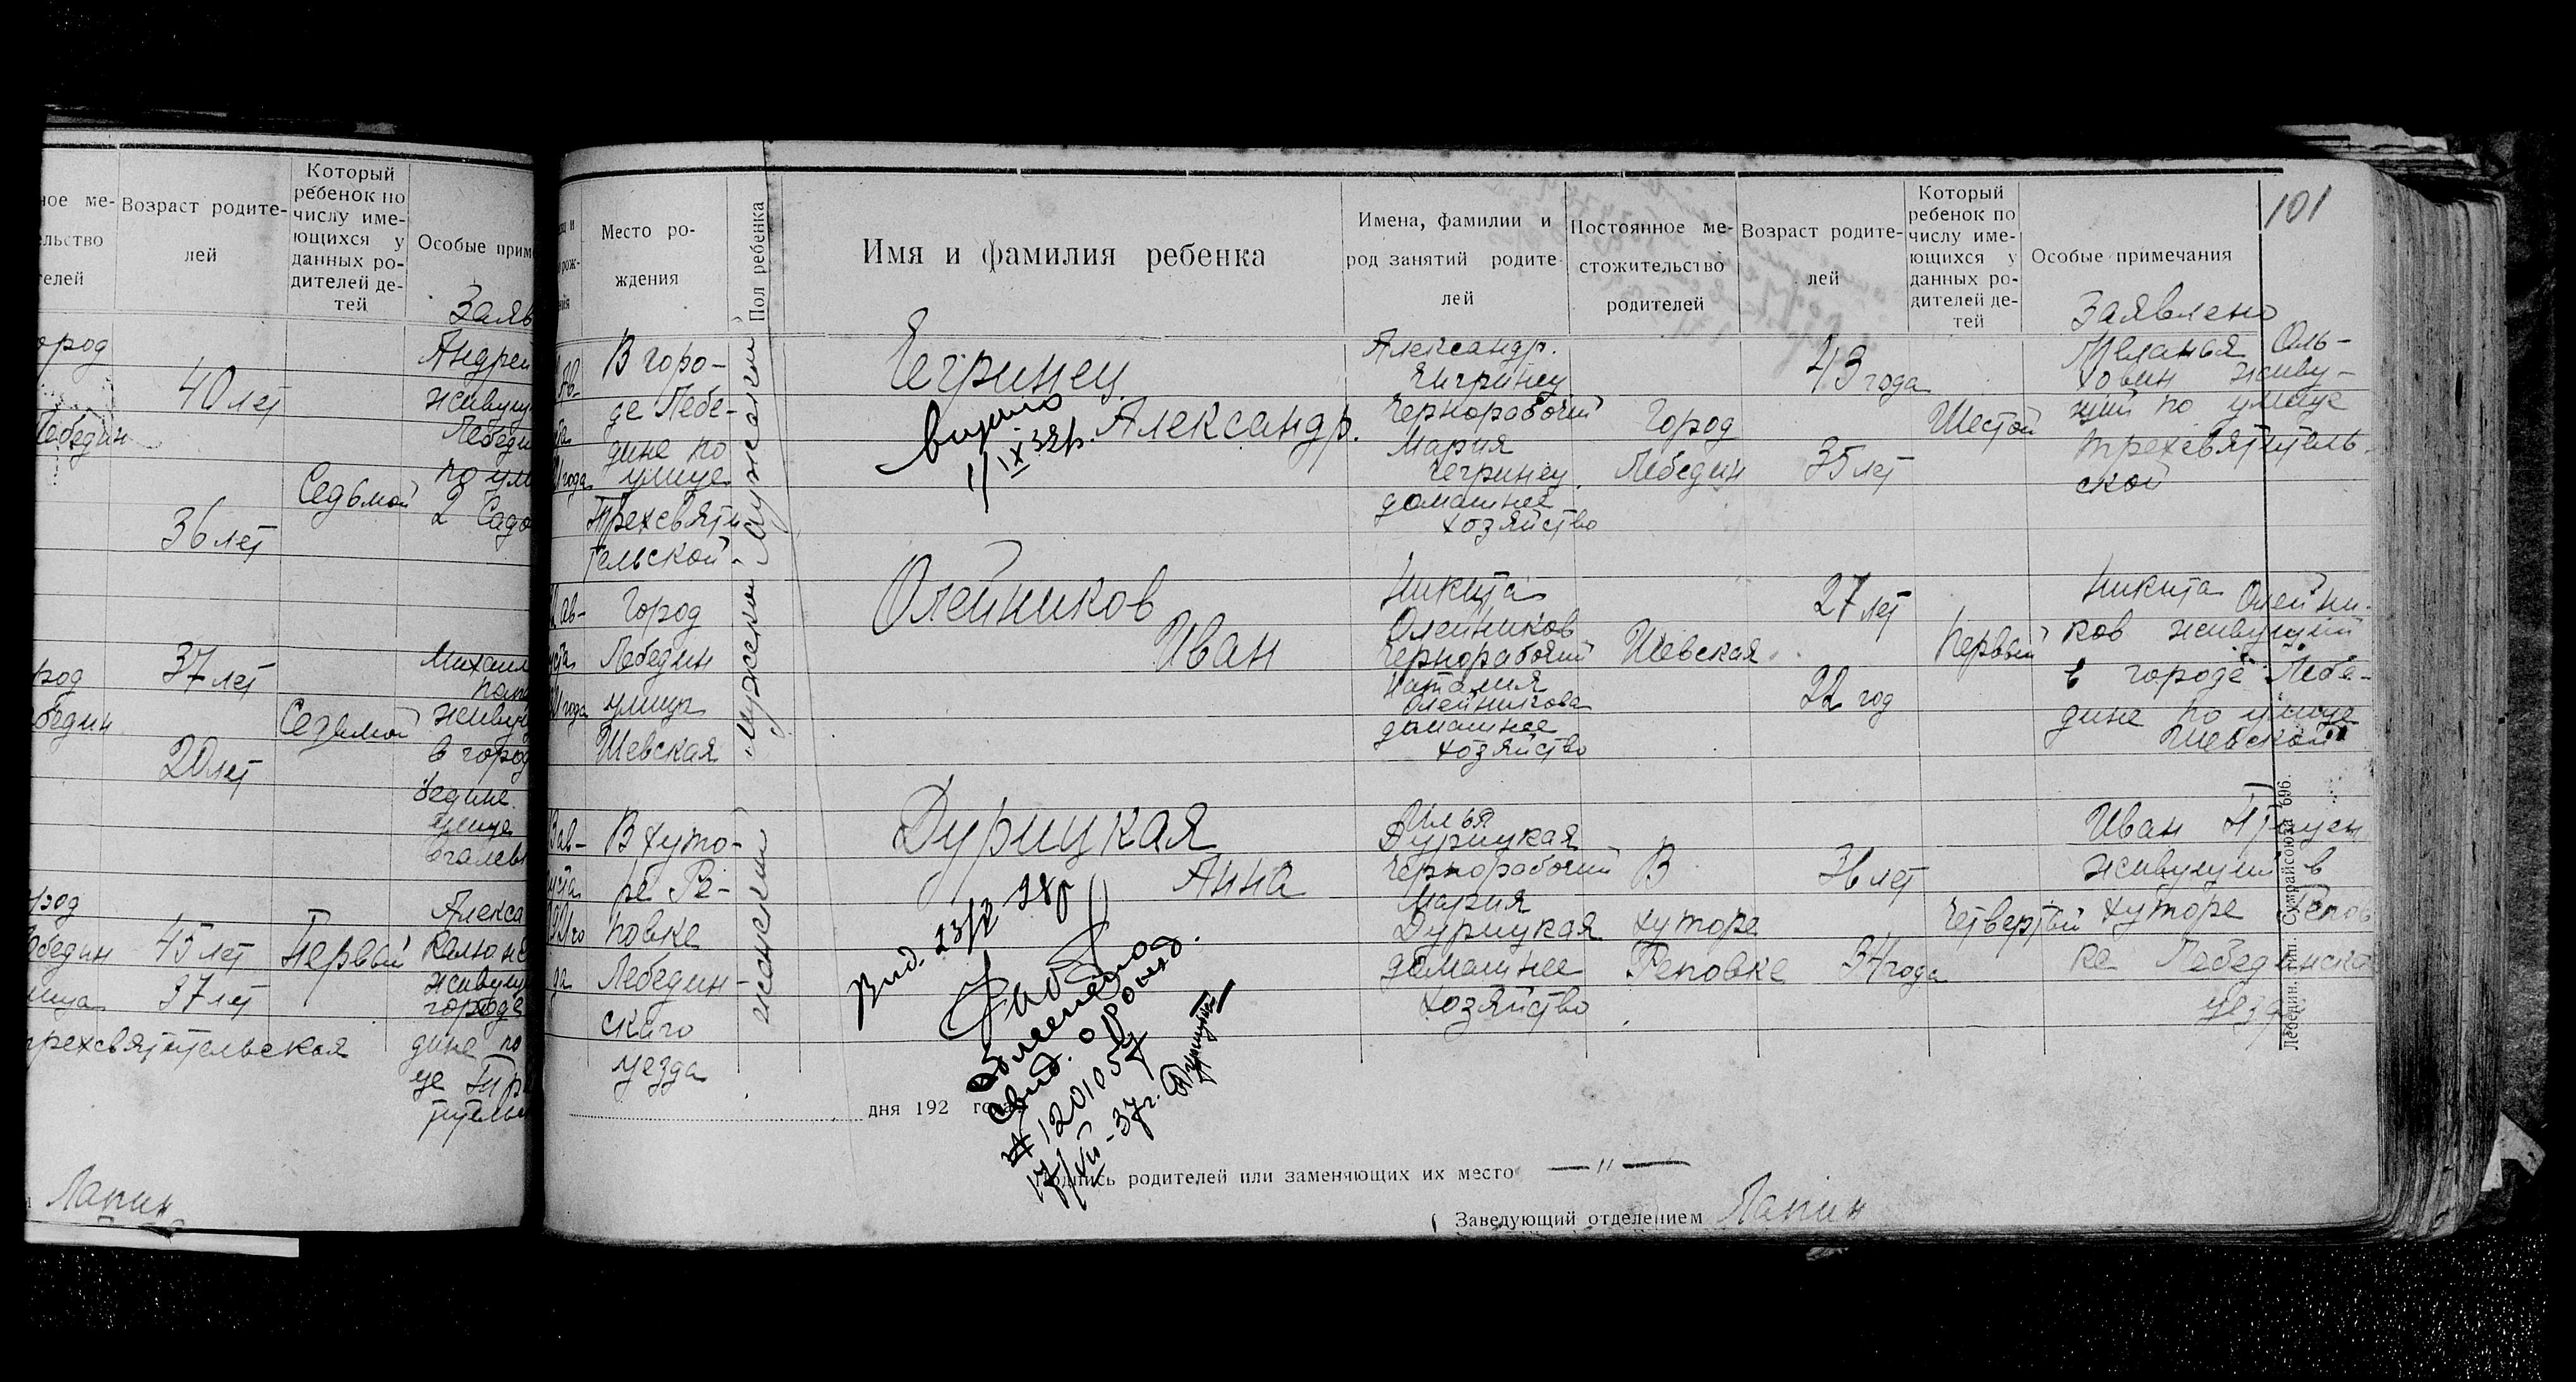 ное ме-
ельство
телей
Возраст родите-
лей
Который
ребенок по
числу име-
ющихся у
данных ро-
дителей де-
тей
Особые прим
Заяв
ород
Лебедин
40 лет
36 лет
Седьмой
Андрей
живущ
Лебеди
по ули
2 Садо
род
бедин
37 лет
20 лет
Седьмой
Михаил
живущ
в город
бедине
улице
род
Лебедин
лица
Трехсвятительская
45 лет
37 лет
Первый
Алекса
живущ
городе
дине по
це Тр
титель
Лапин
101
Место ро-
ждения
Пол ребенка
Имя и фамилия ребенка
Имена, фамилии и
род занятий родите-
лей
Постоянное ме-
стожительство
родителей
Возраст родите-
лей
Который
ребенок по
числу име-
ющихся у
данных ро-
дителей де-
тей
Особые примечания
Заявлено
В горо-
де Лебе-
дине по
улице
Трехсвяти
тельской
Мужской
Чегринец
Александр.
1/IX 32р.
Александр.
Чегринец
Чернорабочий
Мария
Чегринец
домашнее
хозяйство
Город
Лебедин
43 года
35 лет
Шестой
Меланья Оль-
ховик живу-
щий по улице
Трехсвятитель-
ской
ав-
уста
21 года
Город
Лебедин
улица
Шевская
Мужской
Олейников
Иван
Никита
Олейников
Чернорабочий
Наталия
Олейникова
домашнее
хозяйство
Шевская
27 лет
22 год
Первый
Никита Олейни-
ков живущий
в городе Лебе-
дине по улице
Шевской
ав-
уста
да
В хуто-
ре Ре-
повке
Лебедин-
скаго
уезда
женский
Дурицкая
Анна
Илья
Дурицкая
Чернорабочий
Мария
Дурицкая
домашнее
хозяйство
В
хуторе
Реповке
36 лет
34 года
Четвертый
Иван
живущий в
хуторе Репов
ке Лебединска
уезд
свид. о рожд.
№ 120105
17/XII-37г.
дня 192 года
Подпись родителей или заменяющих их место — " —
Заведующий отделением Лапин
Лебедин. тип. Сумрайсоюза 696.